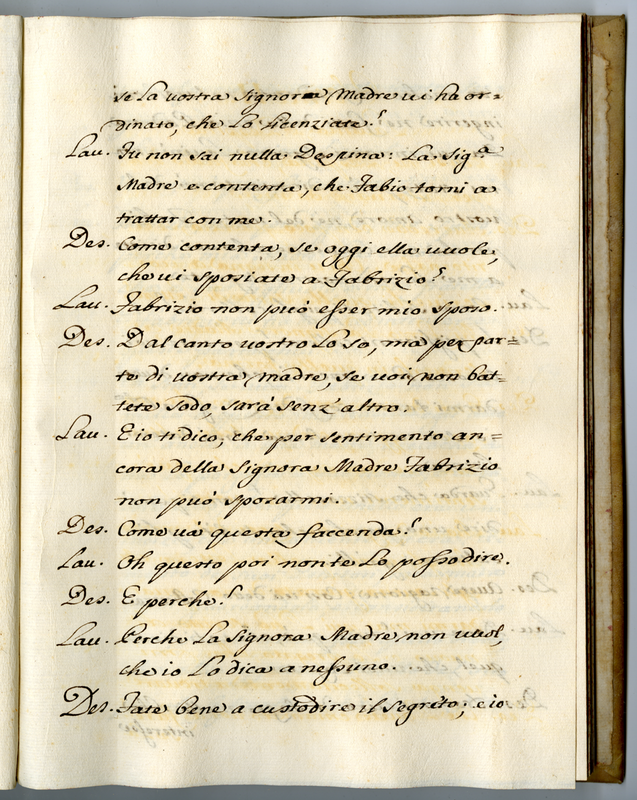 se la vostra Signora Madre vi ha or=
dinato, che lo licenziate?
Lau. Tu non sai nulla Despina: La Sig.ª
Madre e contenta, che Fabio torni a
trattar con me.
Des. Come contenta, se oggi ella vuole,
che vi sposiate a Fabrizio?
Lau. Fabrizio non può esser mio sposo.
Des. Dal canto vostro lo so, ma per par=
te di vostra madre, se voi non bat=
tete sodo, sarà senz'altro.
Lau. E io ti dico, che per sentimento an=
cora della Signora Madre Fabrizio
non può sposarmi.
Des. Come và questa faccenda?
Lau. Oh questo poi non te lo posso dire.
Des. E perche?
Lau. Perche la Signora Madre non vuol,
che io lo dica a nessuno.
Des. Fate bene a custodire il segreto; e io